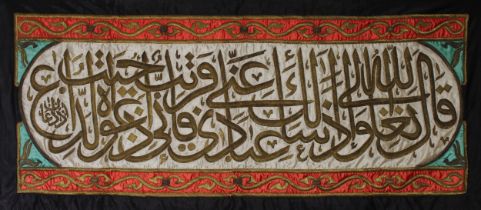 قال الله تعالى وإذا سألك عبادي عني فإني قريب أجيب دعوة الداع